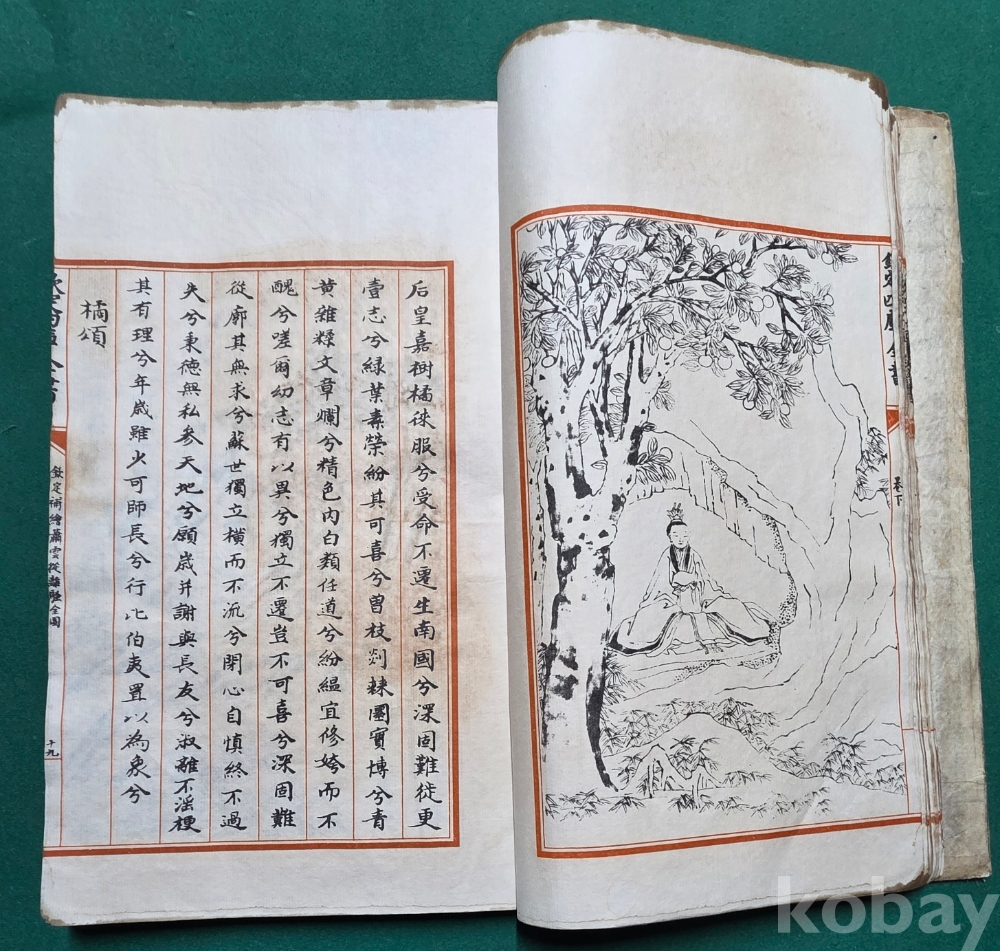 欽定四庫全書
卷下
后皇嘉樹橘徠服兮受命不遷生南國兮深固難徙更
壹志兮緑葉素榮紛其可喜兮曽枝剡棘圜實博兮青
黄雜糅文章爛兮精色内白類任道兮紛緼宜修姱而不
醜兮嗟爾幼志有以異兮獨立不遷豈不可喜兮深固難
徙廓其無求兮蘇世獨立横而不流兮閉心自慎終不過
失兮秉徳無私參天地兮願嵗并謝與長友兮淑離不滛梗
其有理兮年嵗雖少可師長兮行比伯夷置以為象兮
橘頌
欽定四庫全書
欽定補繪蕭雲從離騷全圖
十九
kobay